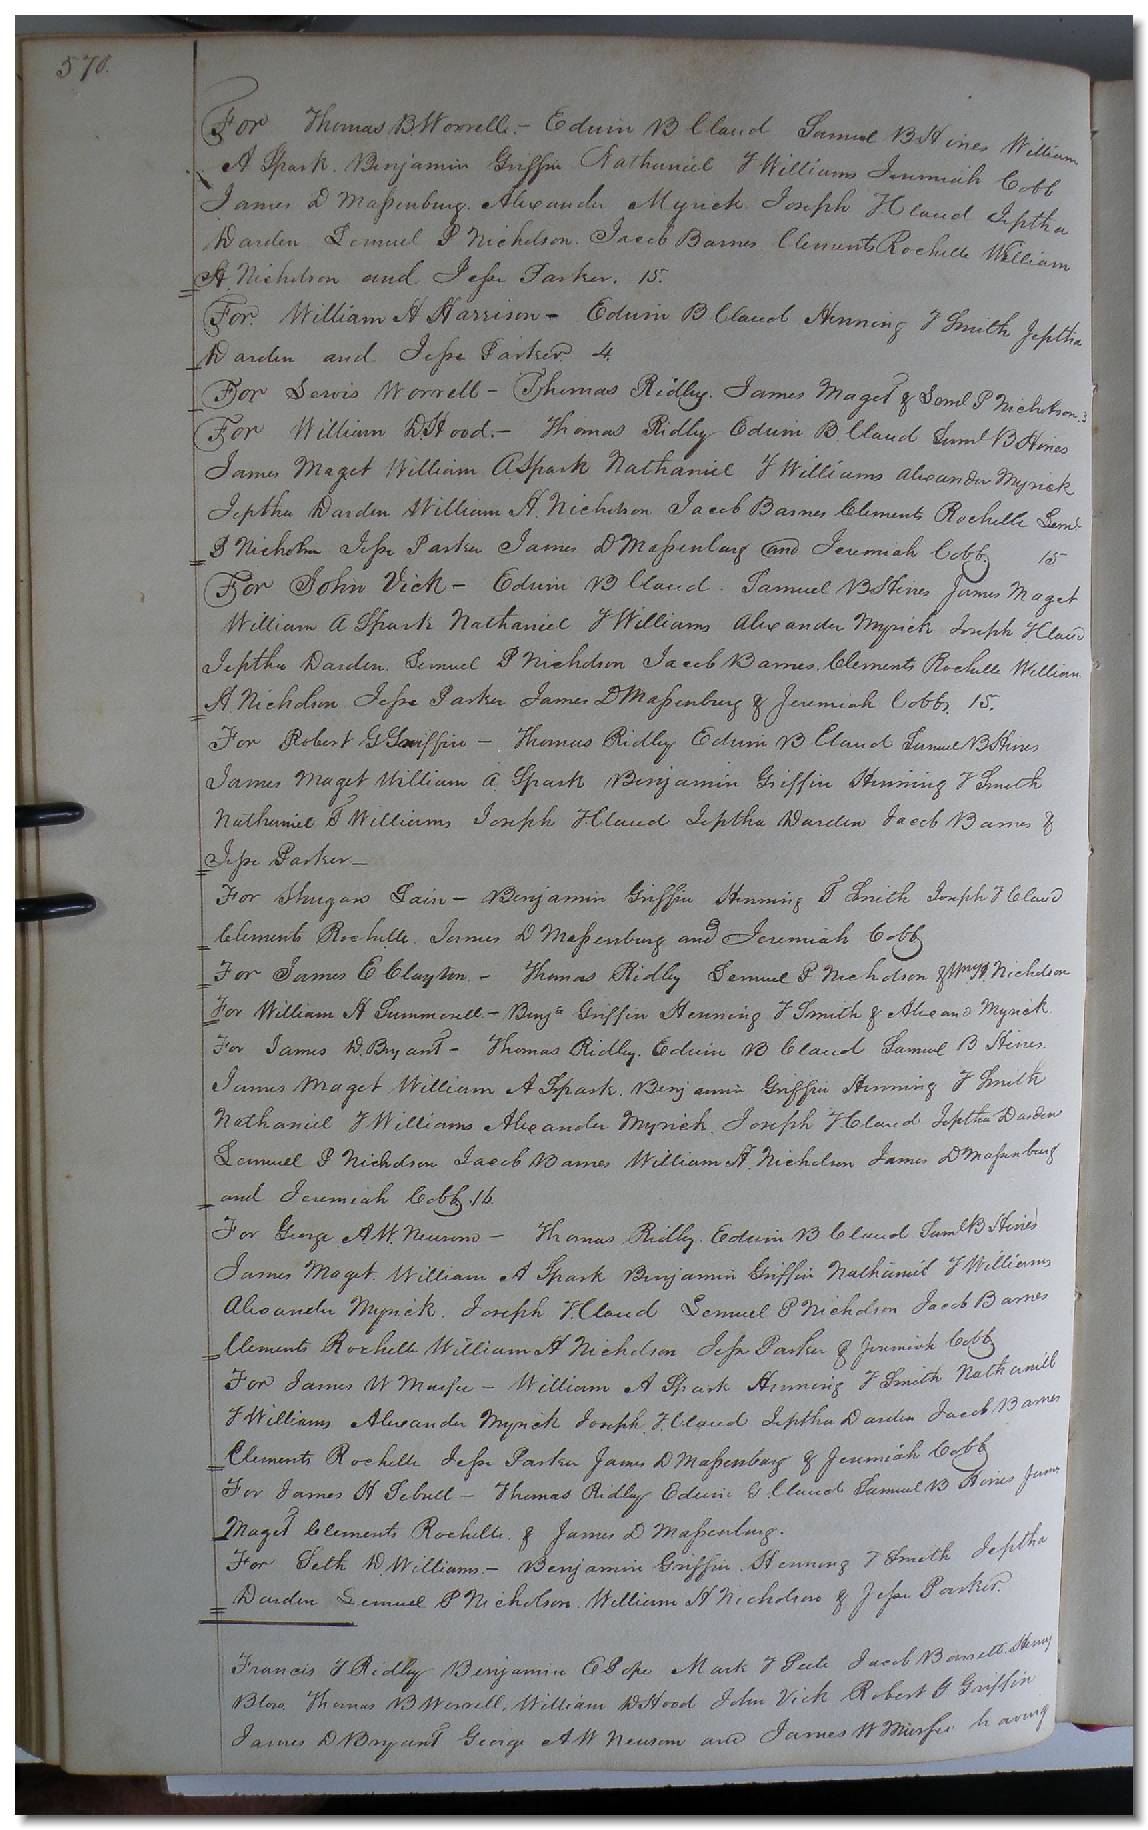 570.
For Thomas B Worrell.- Edwin B Claud Samuel B Hines William
A Spark. Benjamin Griffin Nathaniel T Williams Jeremiah Cobb
James D Massenburg. Alexander Myrick Joseph T Claud Jeptha
Darden Lemuel P Nicholson. Jacob Barnes Clements Rochelle William
A. Nicholson and Jesse Parker. 15.
For. William H Harrison - Edwin B Claud Henning T Smith Jeptha
Darden and Jesse Parker 4.
For Lewis Worrell - Thomas Ridley. James Maget & Leml P Nicholson.3
For William D Hood.- Thomas Ridley Edwin B. Claud Saml B Hines
James Maget William A. Spark Nathaniel T Williams Alexander Myrick
Jeptha Darden William A. Nicholson Jacob Barnes Clements Rochelle Leml
P Nicholson Jesse Parker James D Massenburg and Jeremiah Cobb 15
For John Vick - Edwin B Claud. Samuel B Hines James Maget
William A Spark Nathaniel T Williams Alexander Myrick Joseph T Claud
Jeptha Darden. Lemuel P Nicholson Jacob Barnes. Clements Rochelle William
A Nicholson Jesse Parker James D Massenburg & Jeremiah Cobbs. 15.
For Robert G Griffin - Thomas Ridley Edwin B Claud Samuel B Hines
James Maget William A Spark Benjamin Griffin Henning T Smith
Nathaniel T Williams Joseph T Claud Jeptha Darden Jacob Barnes &
Jesse Parker -
For Shugars Lain - Benjamin Griffin Henning T Smith Joseph T Claud
Clements Rochelle. James D Massenburg and Jeremiah Cobb
For James E Clayton. - Thomas Ridley Lemuel P Nicholson & Wm A Nicholson
For William H Summerell - Benja Griffin Henning T Smith & Alexand Myrick.
For James D. Bryant - Thomas Ridley. Edwin B Claud Samuel B Hines.
James Maget William A Spark. Benjamin Griffin Henning T Smith
Nathaniel T Williams Alexander Myrick Joseph T Claud Jeptha Darden
Lemuel P Nicholson Jacob Barnes William A. Nicholson James D Massenburg
and Jeremiah Cobb. 16.
For George A W. Newsom - Thomas Ridley. Edwin B Claud Saml B Hines
James Maget. William A Spark Benjamin Griffin Nathaniel T Williams
Alexander Myrick. Joseph T Claud Lemuel P Nicholson Jacob Barnes
Clements Rochelle William A Nicholson Jesse Parker & Jeremiah Cobb
For James W Murfee - William A Spark Henning T Smith Nathaniel
T Williams Alexander Myrick Joseph T Claud Jeptha Darden Jacob Barnes
Clements Rochelle Jesse Parker James D Massenburg & Jeremiah Cobb
For James H Sebrell - Thomas Ridley Edwin G Claud Samuel B Hines James
Maget Clements Rochelle. & James D Massenburg.
For Seth D. Williams.- Benjamin Griffin. Henning T Smith Jeptha
Darden Lemuel P Nicholson. William A Nicholson & Jesse Parker.
Francis T Ridley Benjamin E Pope Mark T Peete Jacob Barrett. Henry
Blow. Thomas B Worrell, William D Hood John Vick Robert G Griffin
James D Bryant George A W Newsom and James W Murfee having